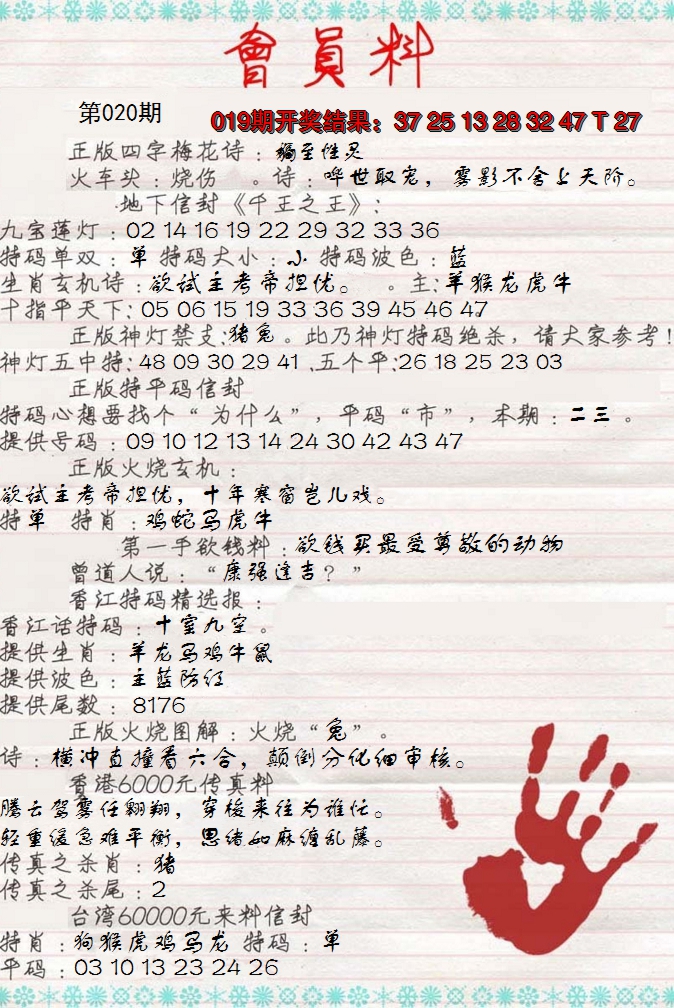 會員料
第020期
019期开奖结果：37 25 13 28 32 47 T 27
正版四字梅花诗：獨至性灵
火车头：烧伤 。诗：哗世取宠，雾影不舍上天阶。
地下信封《千王之王》：
九宝莲灯：02 14 16 19 22 29 32 33 36
特码单双：单 特码大小：小 特码波色：蓝
生肖玄机诗：欲试主考帝担忧。 。主：羊猴龙虎牛
十指平天下：05 06 15 19 33 36 39 45 46 47
正版神灯禁支：猪兔。此乃神灯特码绝杀，请大家参考！
神灯五中特：48 09 30 29 41 .五个平：26 18 25 23 03
正版特平码信封
特码心想要找个“为什么”，平码“市”，本期：二三。
提供号码：09 10 12 13 14 24 30 42 43 47
正版火烧玄机：
欲试主考帝担忧，十年寒窗岂儿戏。
特单 特肖：鸡蛇马虎牛
第一手欲钱料：欲钱买最受尊敬的动物
曾道人说：“康强逢吉？”
香江特码精选报：
香江话特码：十室九空。
提供生肖：羊龙马鸡牛鼠
提供波色：主蓝防红
提供尾数：8176
正版火烧图解：火烧“兔”。
诗：横冲直撞看六合，颠倒分化细审核。
香港6000元传真料
腾云驾雾任翱翔，穿梭来往为谁忙。
轻重缓急难平衡，思绪如麻缠乱藤。
传真之杀肖：猪
传真之杀尾：2
台湾60000元来料信封
特肖：狗猴虎鸡马龙 特码：单
平码：03 10 13 23 24 26